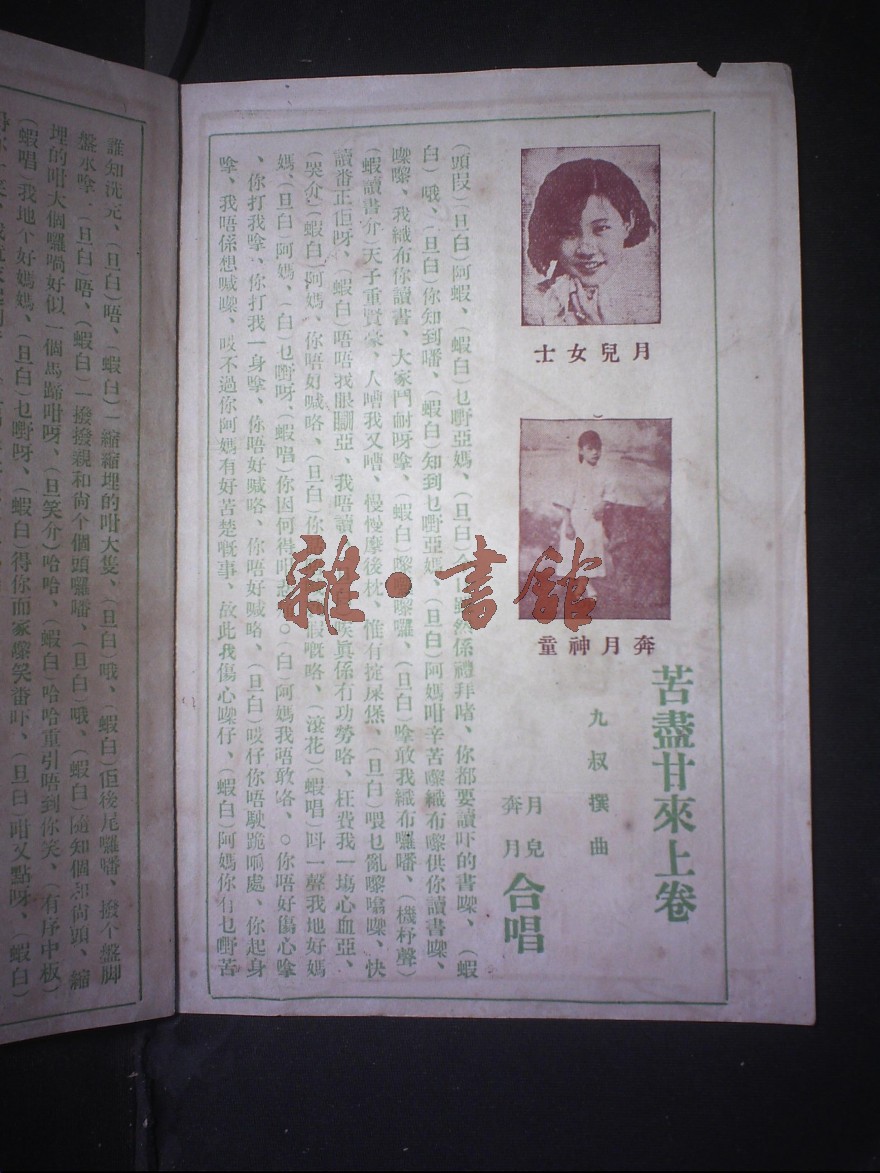 苦盡甘來上卷
九叔撰曲
月兒
奔月
合唱
月兒女士
奔月神童
(頭段)(旦白)阿蝦、(蝦白)乜嘢亞媽、(旦白)
雖然係禮拜啫、你都要讀吓的書㗎、(蝦
白)哦、(旦白)你知到噃、(蝦白)知到乜嘢亞媽、(旦白)阿媽咁辛苦嚟織布嚟供你讀書㗎、
㗎㗎、我織布你讀書、大家鬥耐呀嗱、(蝦白)嚟嚟嚟囉、(旦白)嗱敢我織布囉噃、(機杼聲)
(蝦讀書介)天子重賢豪、人嘈我又嘈、慢慢摩後枕、惟有掟屎煲、(旦白)喂乜亂嚟嗡㗎、快
讀番正佢呀、(蝦白)唔唔我眼瞓亞、我唔讀
真係冇功勞咯、枉費我一塲心血亞、
(哭介)(蝦白)阿媽、你唔好喊咯、(旦白)你
假嘅咯、(滾花)(蝦唱)呌一聲我地好媽
媽、(旦白)阿媽、(白)乜嘢呀、(蝦唱)你因何得咁
○(白)阿媽我唔敢咯、○你唔好傷心嗱
、你打我嗱、你打我一身嗱、你唔好喊咯、你唔好喊咯、(旦白)哎仔你唔駛跪喺處、你起身
嗱、我唔係想喊㗎、哎不過你阿媽有好苦楚嘅事、故此我傷心㗎仔、(蝦白)阿媽你有乜嘢苦
誰知洗完、(旦白)唔、(蝦白)一縮縮埋的咁大隻、(旦白)哦、(蝦白)佢後尾囉噃、撥个盤脚
盤水嗱、(旦白)唔、(蝦白)一撥撥親和尙个個頭囉噃、(旦白)哦、(蝦白)隨知個和尙頭、縮
埋的咁大個囉喎好似一個馬蹄咁呀、(旦笑介)哈哈、(蝦白)哈哈重引唔到你笑、(有序中板)
(蝦唱)我地个好媽媽、(旦白)乜嘢呀、(蝦白)得你而家嚟笑番吓、(旦白)咁又點呀、(蝦白)
雜·書館